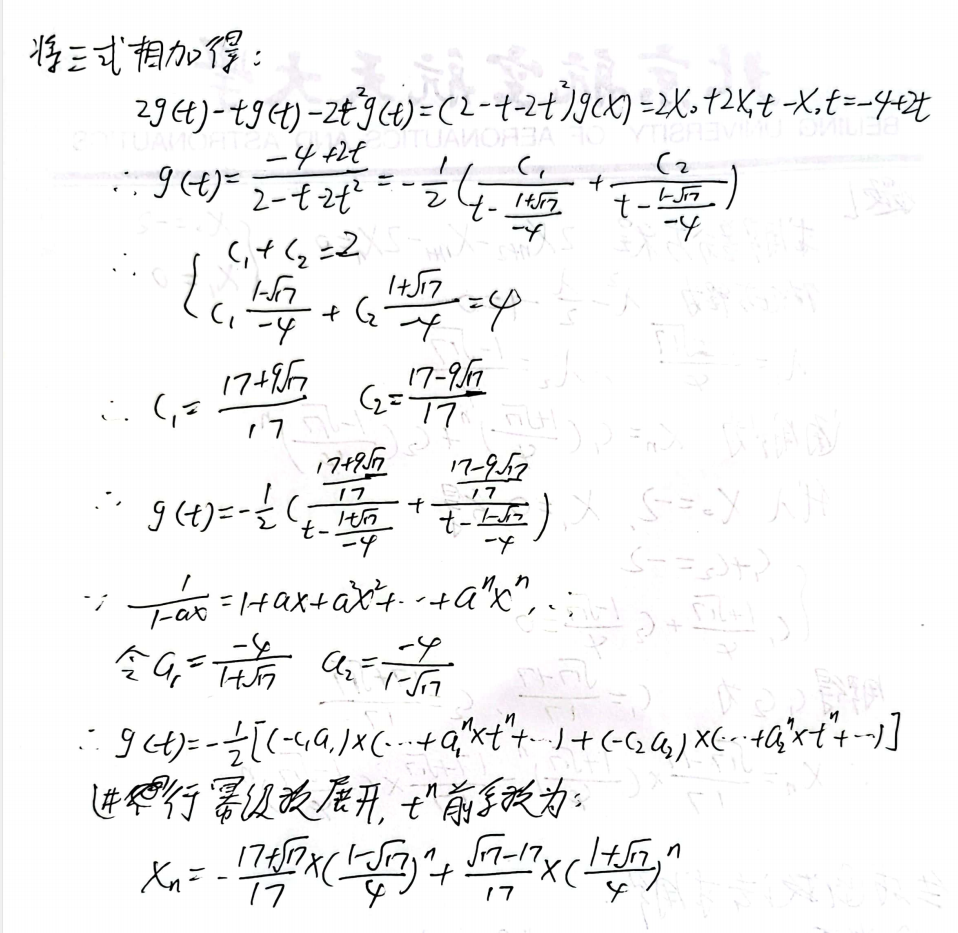 将三式相加得:
2g(t)-tg(t)-2t²g(t)=(2-t-2t²)g(x)=2X₀+2X₁t-X₀t=-4+2t
∴ g(t)=\frac{-4+2t}{2-t-2t²}=-\frac{1}{2}(\frac{C₁}{t-\frac{1+√17}{-4}}+\frac{C₂}{t-\frac{1-√17}{-4}})
∴ { C₁+C₂=2
C₁\frac{1-√17}{-4}+C₂\frac{1+√17}{-4}=4
∴ C₁=\frac{17+9√17}{17} C₂=\frac{17-9√17}{17}
∴ g(t)=-\frac{1}{2}(\frac{\frac{17+9√17}{17}}{t-\frac{1+√17}{-4}}+\frac{\frac{17-9√17}{17}}{t-\frac{1-√17}{-4}})
∵ \frac{1}{1-ax}=1+ax+a²x²+…+aⁿxⁿ…
令 a₁=\frac{-4}{1+√17} a₂=\frac{-4}{1-√17}
∴ g(t)=-\frac{1}{2}[(-c₁a₁)×(…+a₁ⁿ×tⁿ+…)+(-c₂a₂)×(…+a₂ⁿ×tⁿ+…)]
进行幂级数展开, tⁿ前系数为:
Xₙ=-\frac{17+√17}{17}×(\frac{1-√17}{4})ⁿ+\frac{√17-17}{17}×(\frac{1+√17}{4})ⁿ